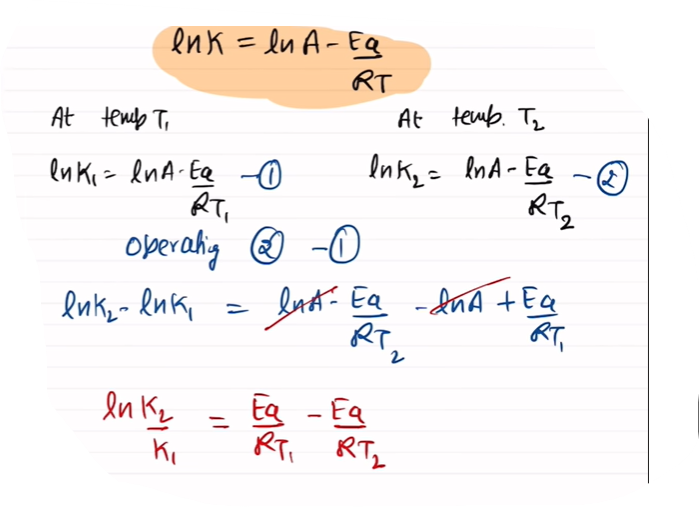 lnK = lnA - Ea/RT
At temp T₁ At temp. T₂
lnK₁ = lnA - Ea/RT₁ - ① lnK₂ = lnA - Ea/RT₂ - ②
operatig ② - ①
lnK₂ - lnK₁ = lnA - Ea/RT₂ - lnA + Ea/RT₁
ln K₂/K₁ = Ea/RT₁ - Ea/RT₂